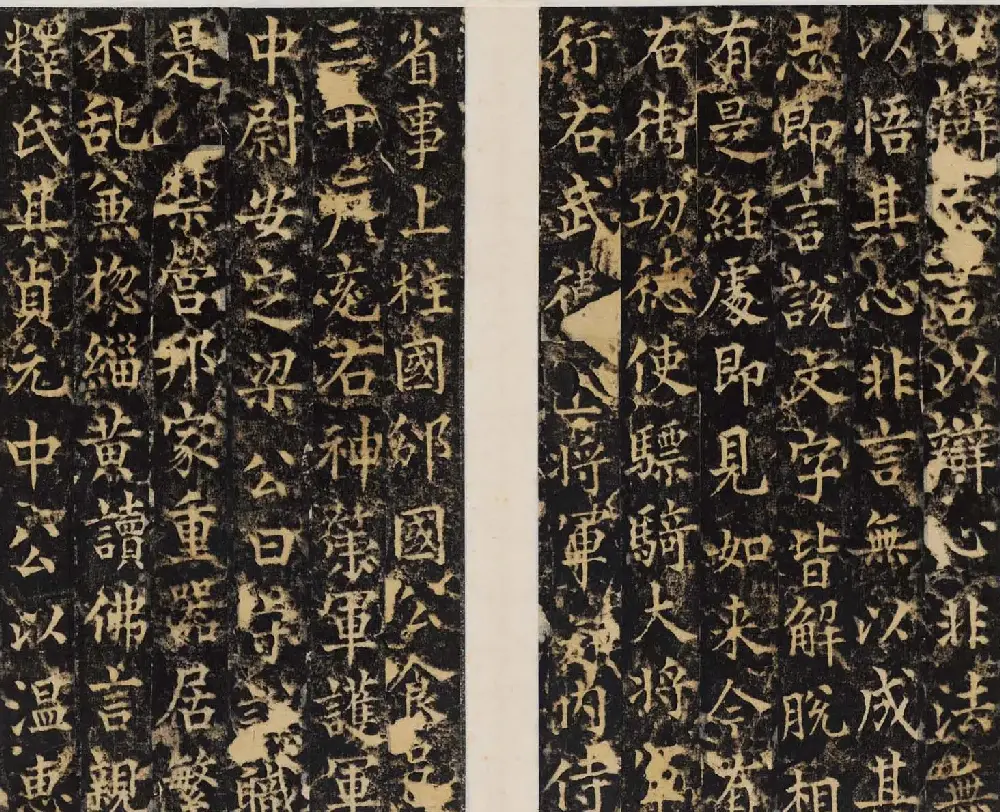 以辯志言以辯心非法無
以悟其心非言無以成其
志即言說文字皆解脫相
有是経處即見如来今有
右街功德使驃騎大將軍
行右武衛上將軍知内侍
省事上柱國邠國公食邑
三千戶充右神策軍護軍
中尉安定梁公曰守謙職
是禁營邦家重器居繁
不乱兼揔緇黃讀佛言親
釋氏其貞元中公以温惠